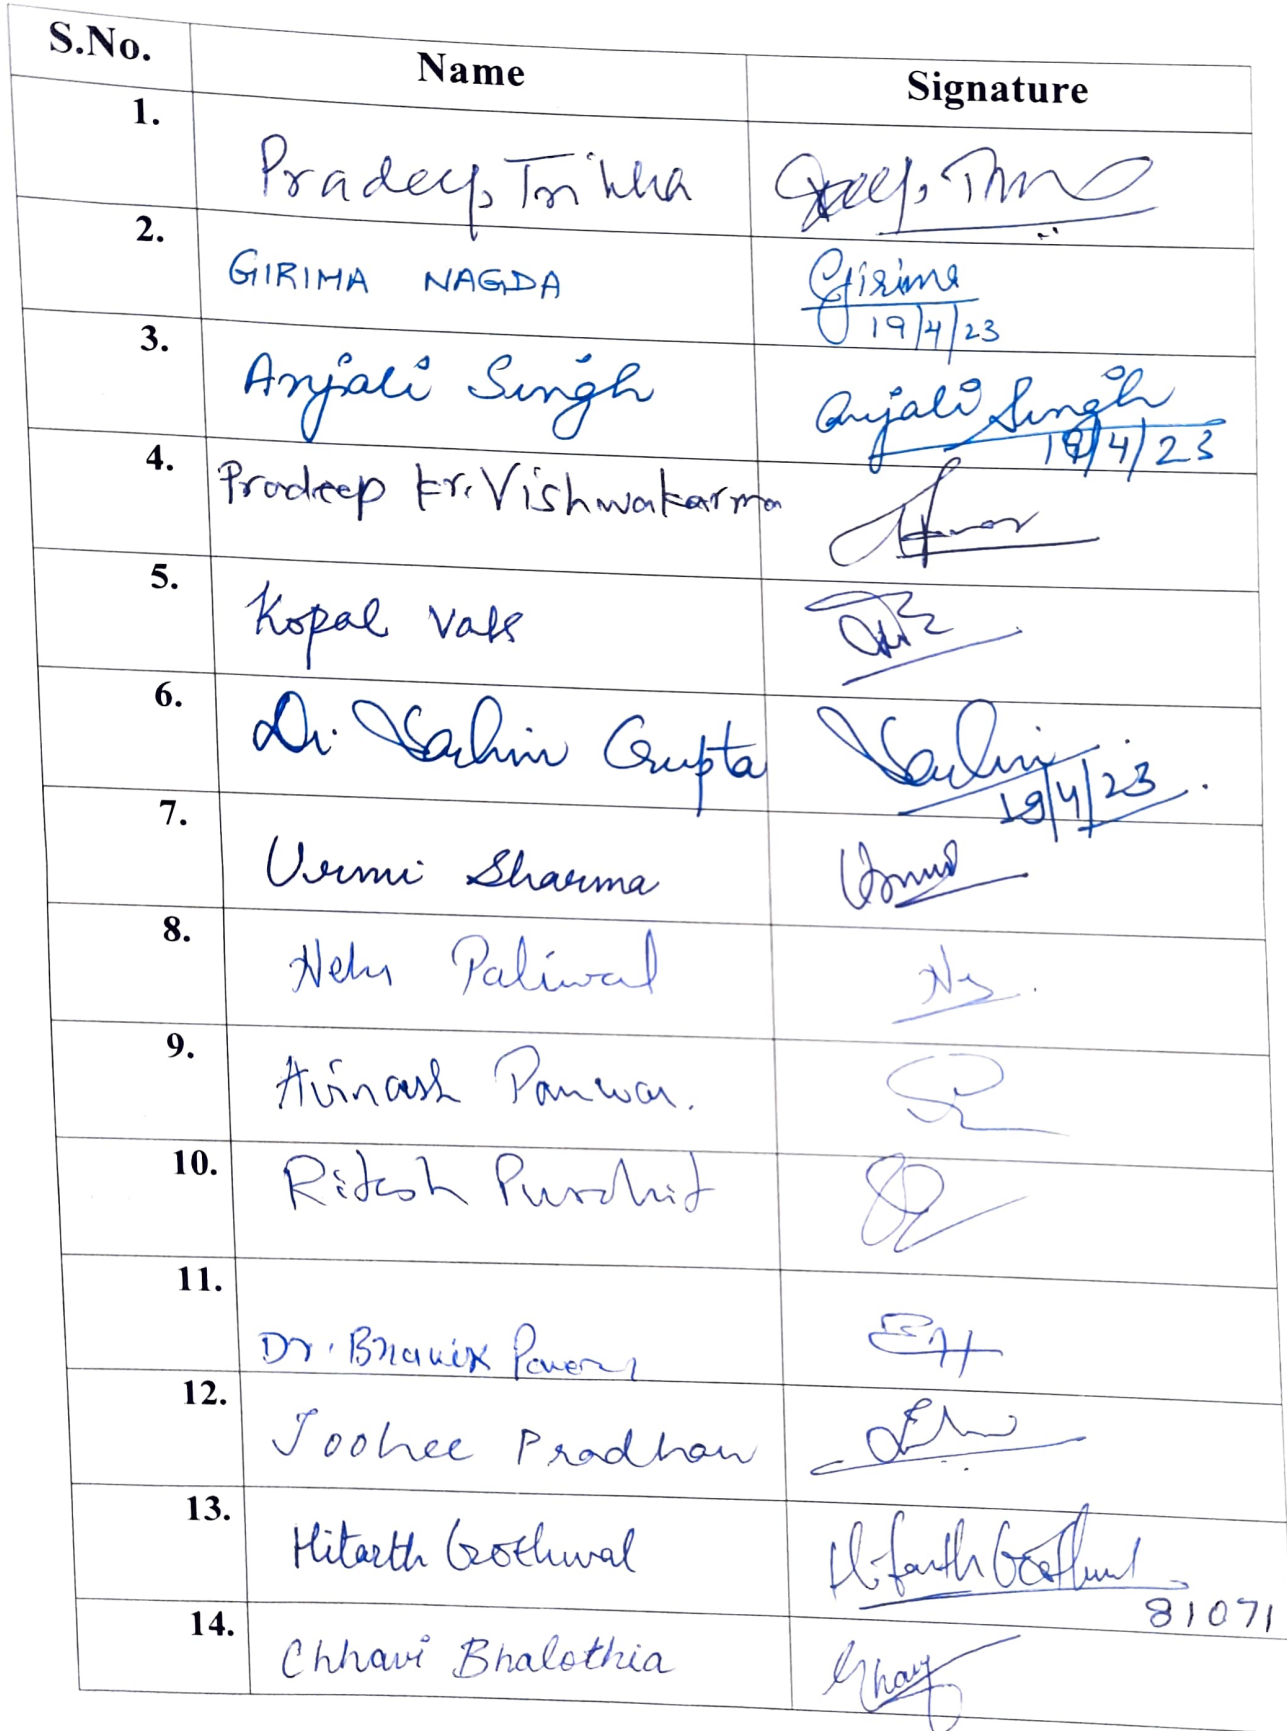 S.No. Name Signature
1. Pradeep Trikha
2. GIRIMA NAGDA Girima
19/4/23
3. Anjali Singh Anjali Singh
19/4/23
4. Pradeep Kr. Vishwakarma
5. Kopal Vats
6. Dr. Gupta
19/4/23
7. Urmi Sharma
8. Neha Paliwal
9. Avinash Panwar.
10. Ritesh Purohit
11. Dr.
12. Joohee Pradhan
13. Hitarth Gothwal Hitarth Gothwal
81071
14. Chhavi Bhalothia